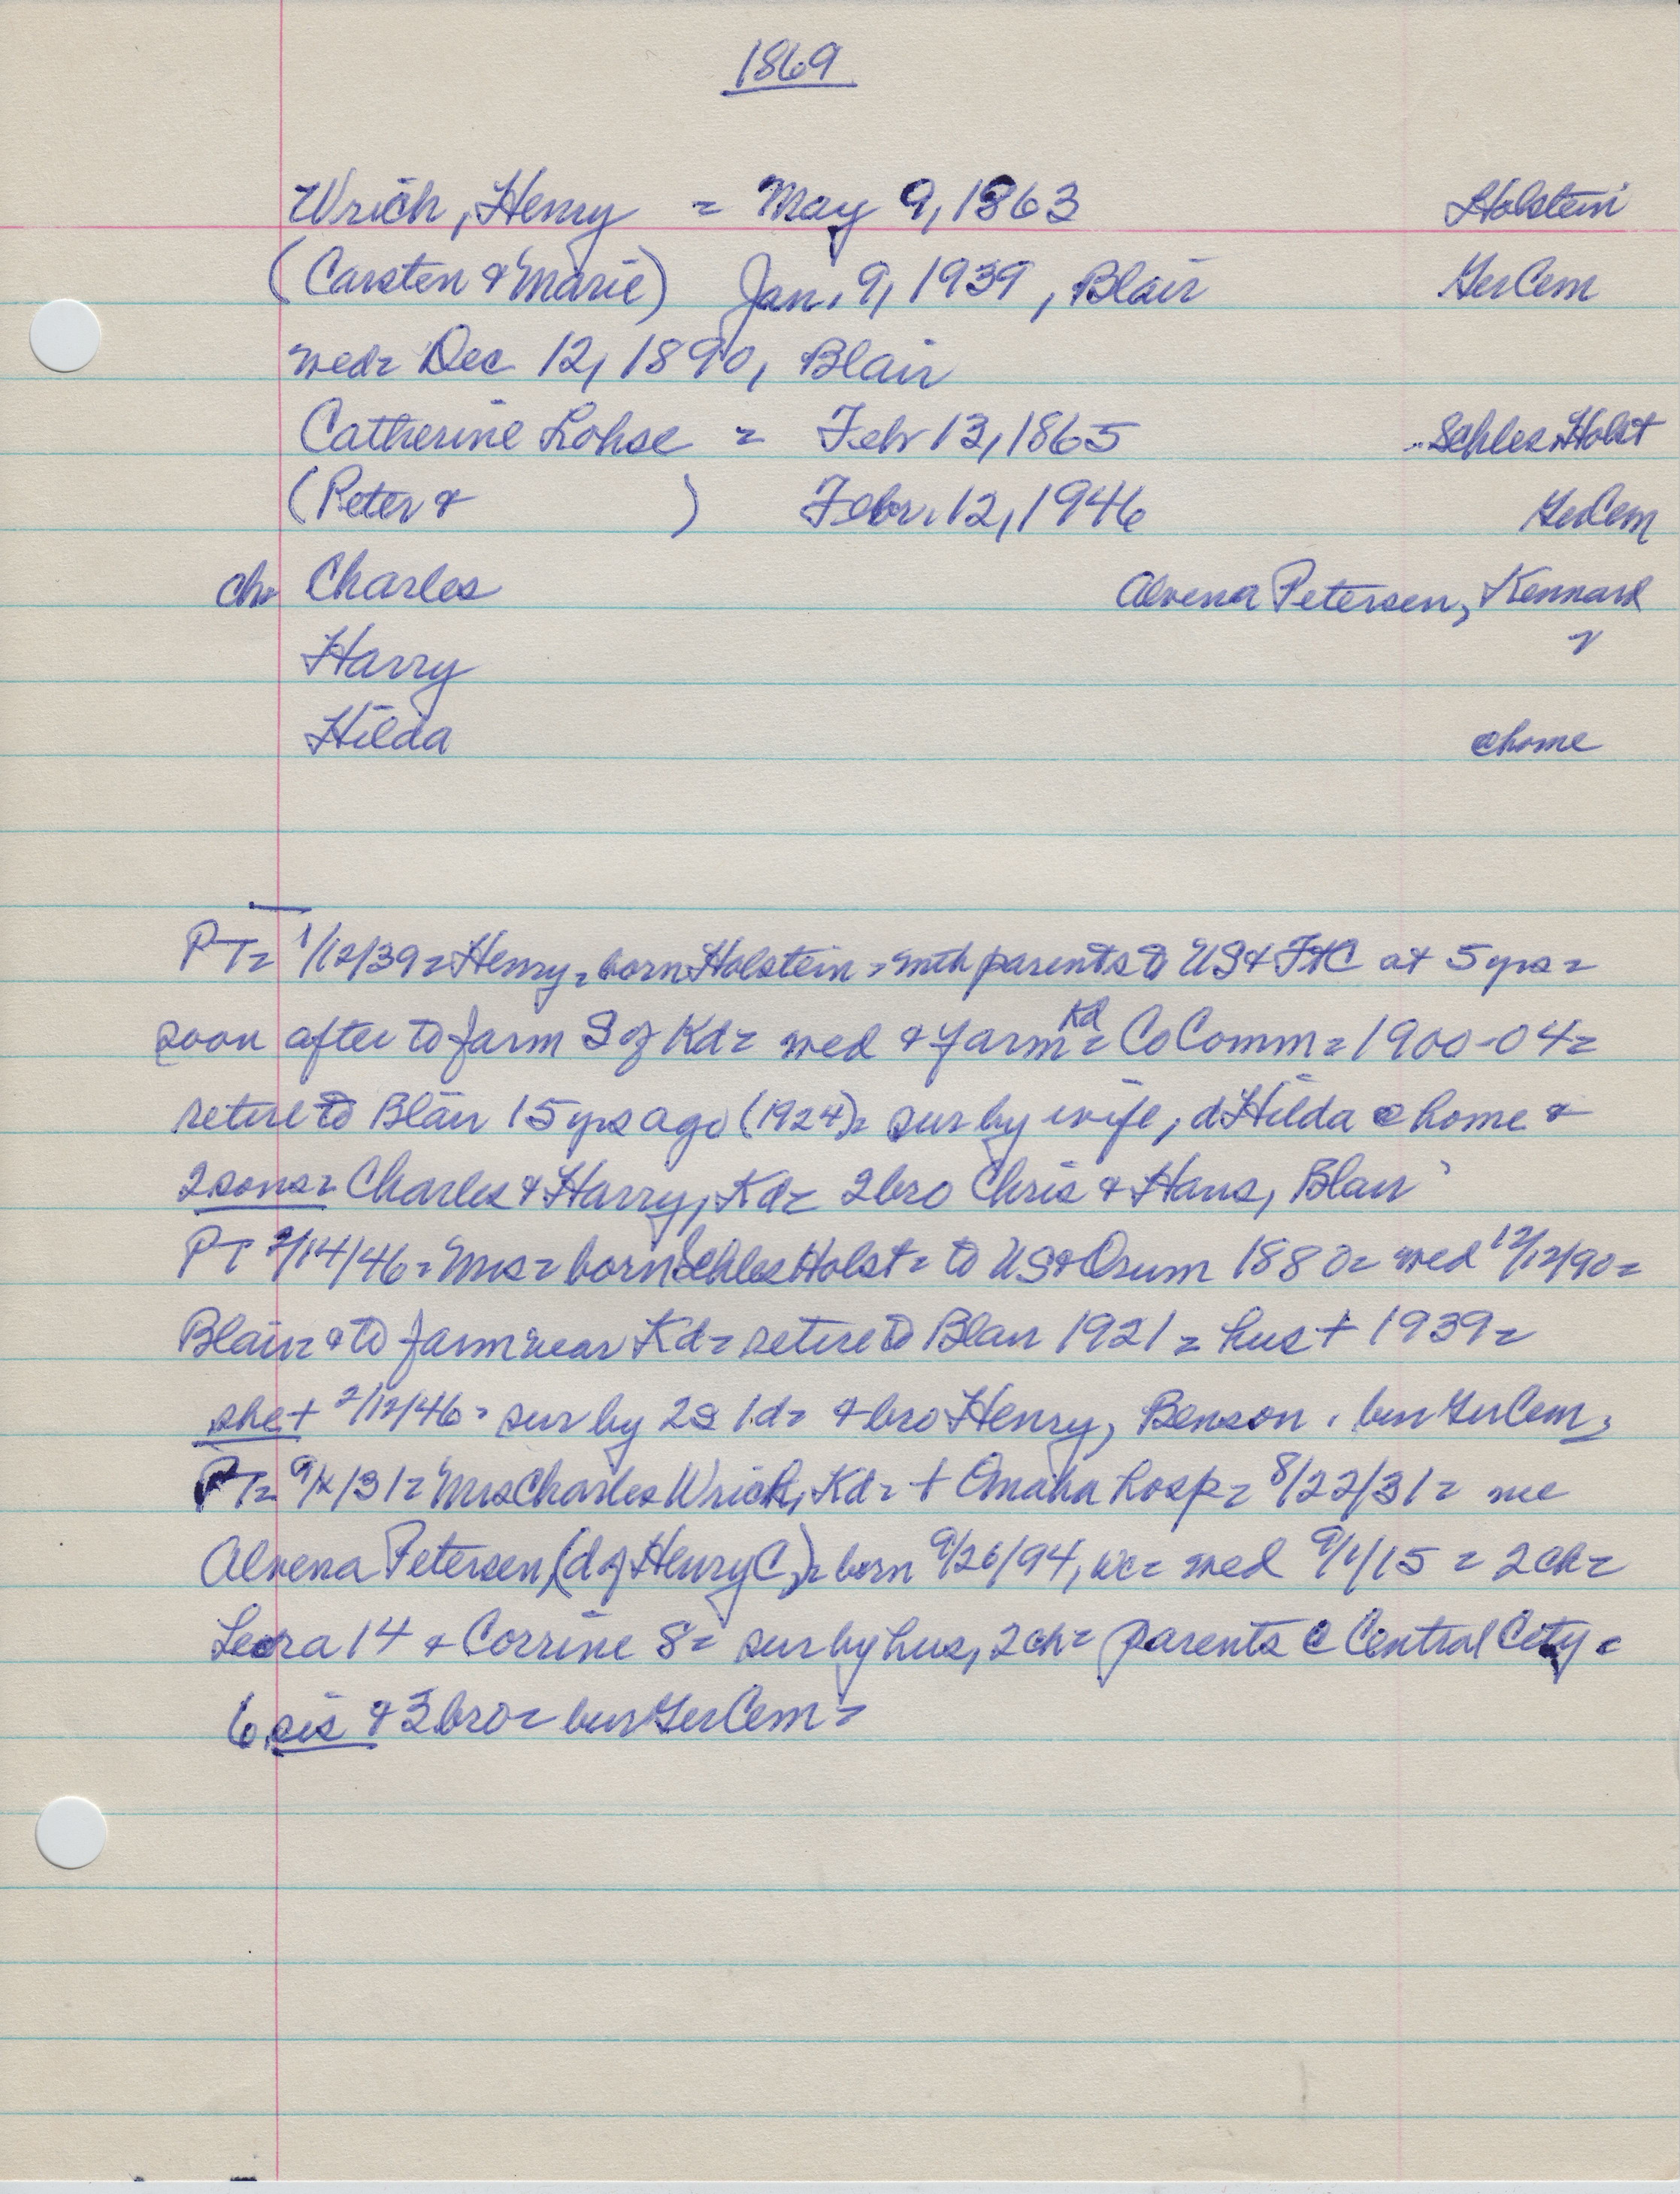 1869
Wrich, Henry = May 9, 1863 Holstein
(Carsten & Marie) Jan. 9, 1939, Blair GerCem
wed= Dec 12, 1890, Blair
Catherine Lohse = Febr 13, 1865 Schles Holst
(Peter & ) Febr. 12, 1946 GerCem
ch= Charles Alvena Petersen, Kennard
Harry "
Hilda @home
PT= 1/12/39= Henry= born Holstein= with parents to US & FtC at 5 yrs=
soon after to farm S of Kd= wed & farm Kd= CoComm= 1900-04=
retire to Blair 15 yrs ago (1924)= sur by wife, d Hilda @ home &
2 sons= Charles & Harry, Kd= 2 bro Chris & Hans, Blair
PT 2/14/46= Mrs= born Schles Holst= to US & Orum 1880= wed 12/12/90=
Blair= & to farm near Kd= retire to Blair 1921= hus + 1939=
she + 2/12/46= sur by 2s 1d= & bro Henry, Benson. bur GerCem,
PT= 9/ /31= Mrs Charles Wrich, Kd= + Omaha hosp= 8/22/31= nee
Alvena Petersen, (d of Henry C)= born 9/26/94, wc= wed 9/1/15 = 2ch=
Leora 14 & Corrine 8= sur by hus, 2ch= parents @ Central City=
6 sis & 3 bro= bur GerCem=